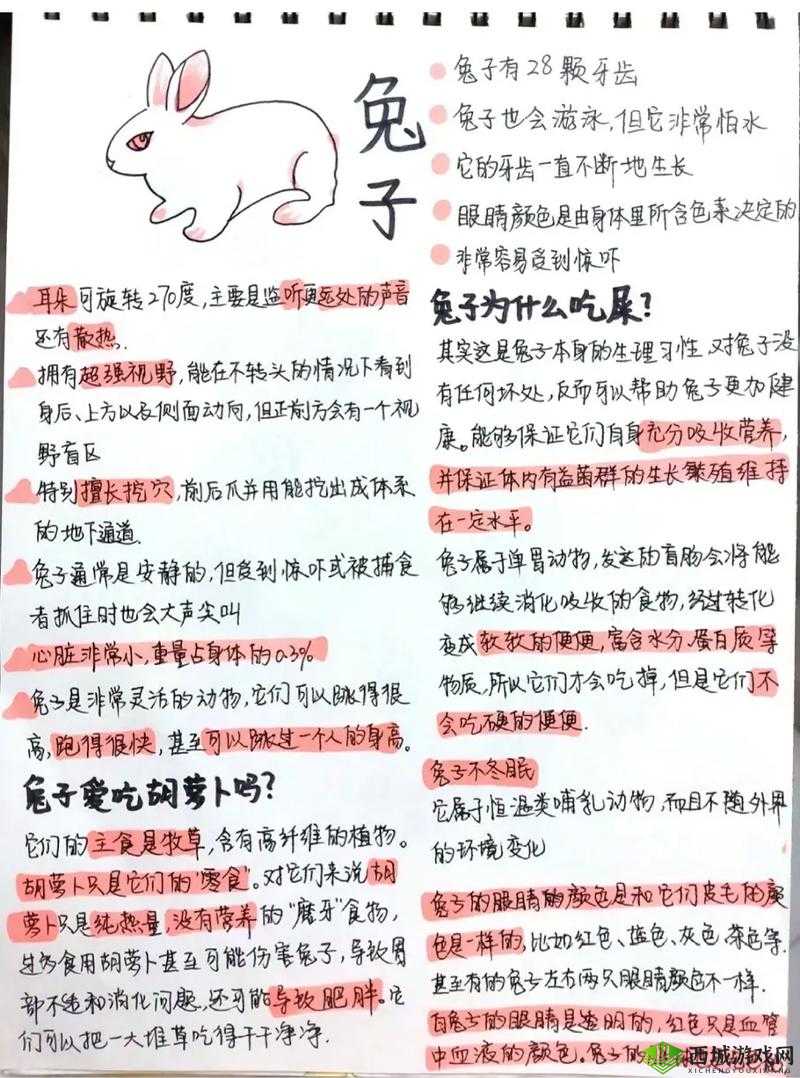 兔子
兔子有28颗牙齿
兔子也会游泳,但它非常怕水
它的牙齿一直不断地生长
眼睛颜色是由身体里所含色素决定的
非常容易受到惊吓
耳朵可旋转270度,主要是监听更远处的声音
还有散热.
拥有超强视野,能在不转头的情况下看到
身后、上方以及侧面动向,但正前方会有一个视
野盲区
特别擅长挖穴,前后爪并用能挖出成体系
的地下通道.
兔子通常是安静的,但受到惊吓或被捕食
者抓住时也会大声尖叫
心脏非常小,重量占身体的0.3%
兔子是非常灵活的动物,它们可以跳得很
高,跑得很快,甚至可以跳过一个人的身高。
兔子爱吃胡萝卜吗?
它们的主食是牧草,含有高纤维的植物。
胡萝卜只是它们的"零食"。对它们来说胡
萝卜只是纯热量,没有营养的"磨牙"食物,
过多食用胡萝卜甚至可能伤害兔子,导致胃
部不适和消化问题,还可能导致肥胖。它
们可以把一大堆草吃得干干净净.
兔子为什么吃屎?
其实这是兔子本身的生理习性,对兔子没
有任何坏处,反而可以帮助兔子更加健
康。能够保证它们自身充分吸收营养,
并保证体内有益菌群的生长繁殖维持
在一定水平。
兔子属于单胃动物,发达的盲肠会将能
够继续消化吸收的食物,经过转化
变成软软的便便,富含水分、蛋白质等
物质,所以它们才会吃掉,但是它们不
会吃硬的便便.
兔子不冬眠
它属于恒温类哺乳动物,而且不随外界
的环境变化
兔子的眼睛的颜色是和它们皮毛的颜
色是一样的,比如红色、蓝色、灰色、茶色等.
甚至有的兔子左右两只眼睛颜色不一样.
白兔子的眼睛是透明的,红色只是血管
中血液的颜色。兔子的
西城游戏网
XICHENGYOUXIWANG